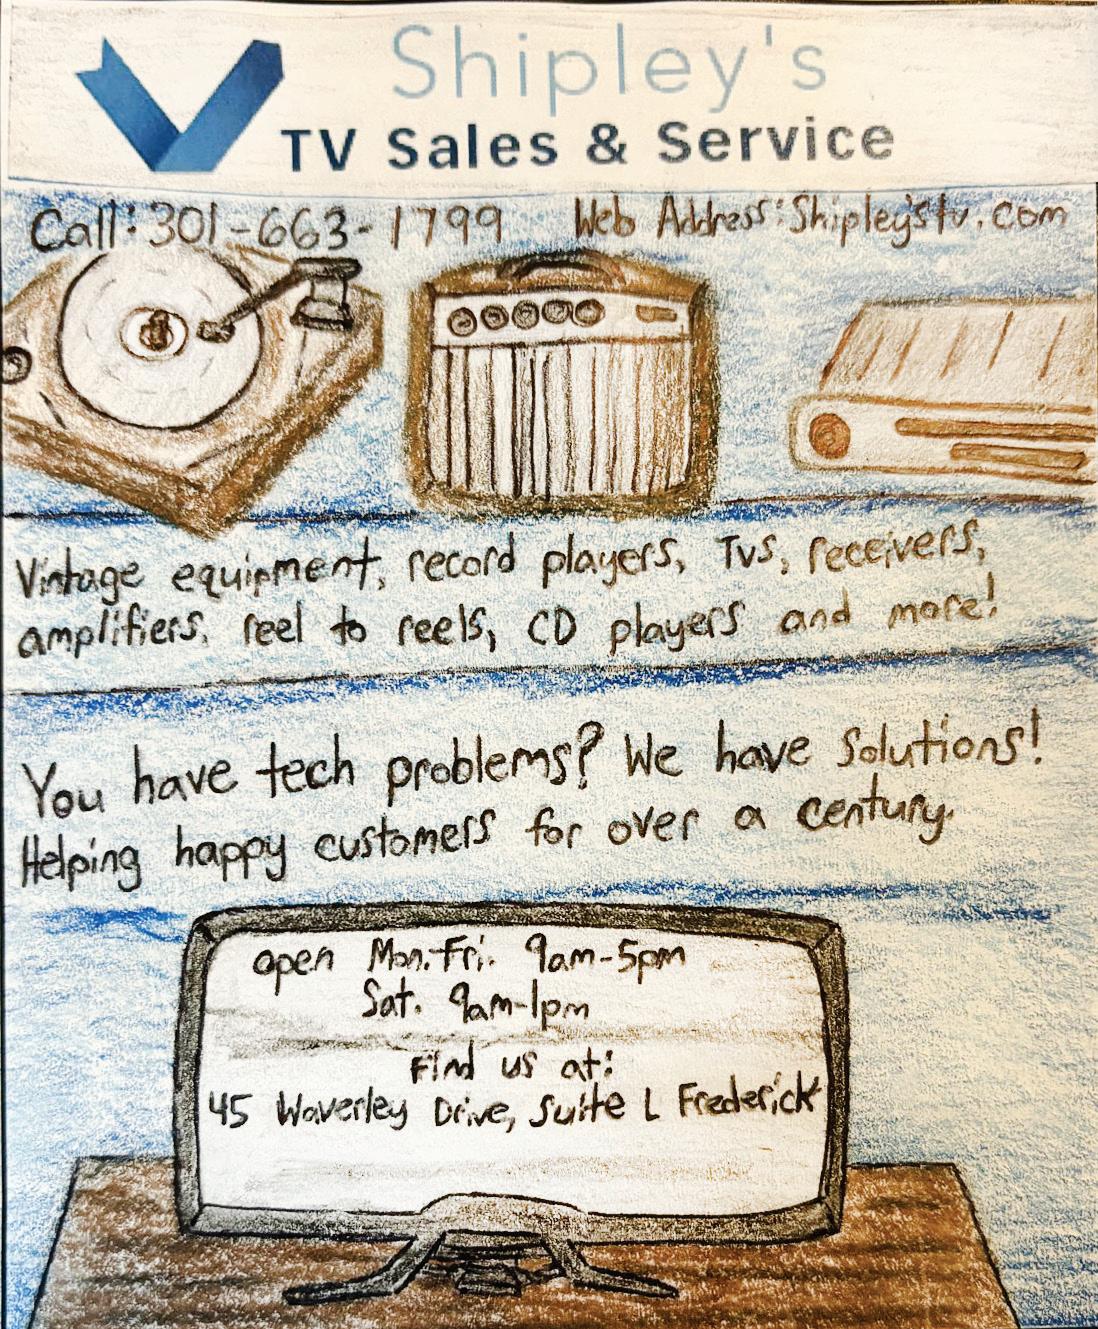 Shipley's
TV Sales & Service
Call: 301-663-1799 Web Address: Shipley'stv.com
Vintage equipment, record players, Tvs, receivers,
amplifiers, reel to reels, CD players and more!
You have tech problems? We have Solutions!
Helping happy customers for over a century.
open Mon.-Fri. 9am-5pm
Sat. 9am-1pm
Find us at:
45 Waverley Drive, Suite L Frederick